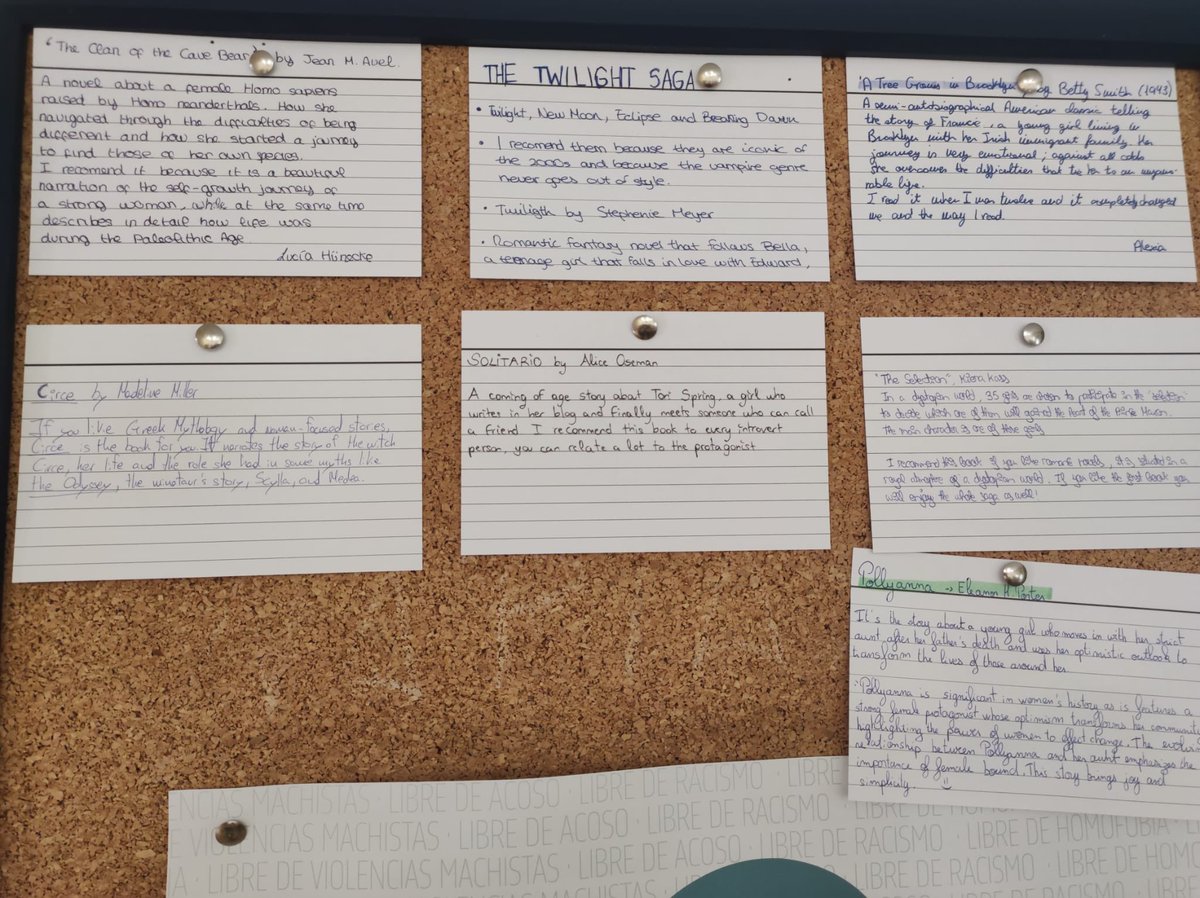 "The Clan of the Cave Bear" by Jean M. Auel.
A novel about a female Homo sapiens
raised by Homo neanderthals. How she
navigated through the difficulties of being
different and how she started a journey
to find those of her own species.
I recomend it because it is a beautiful
narration of the self-growth journey of
a strong woman, while at the same time
describes in detail how life was
during the Paleolithic Age
Lucía Hünecke
THE TWILIGHT SAGA
• Twilight, New Moon, Eclipse and Breaking Dawn
• I recomend them because they are iconic of
the 2000s and because the vampire genre
never goes out of style.
• Twiligth by Stephenie Meyer
• Romantic fantasy novel that follows Bella,
a teenage girl that falls in love with Edward,
'A Tree Grows in Brooklyn' by Betty Smith (1943)
A semi-autobiographical American classic telling
the story of Francie, a young girl living in
Brooklyn with her Irish immigrant family. Her
journey is very emotional; against all odds
she overcomes the difficulties that tie her to an
rable life.
I read it when I was twelve and it completely changed
me and the way I read.
Alexia
Circe by Madeline Miller
If you like Greek Mythology and woman-focused stories,
Circe is the book for you. It narrates the story of the witch
Circe, her life and the role she had in some myths like
the Odyssey, the minotaur's story, Scylla, and Medea.
SOLITARIO by Alice Oseman
A coming of age story about Tori Spring, a girl who
writes in her blog and finally meets someone who can call
a friend. I recommend this book to every introvert
person, you can relate a lot to the protagonist
"The Selection", Kiera Kass
In a dystopian world, 35 girls are chosen to participate in the 'selection'
to decide which one of them will gained the heart of the Prince Maxon.
The main character is one of these girls
I recommend this book if you like romantic novels, it is situated in a
royal atmosphere of a dystopian world. If you like the first book you
will enjoy the whole saga as well!
Pollyanna → Eleanor H. Porter
It's the story about a young girl who moves in with her strict
aunt after her father's death and uses her optimistic outlook to
transform the lives of those around her
Pollyanna is significant in women's history as is features a
strong female protagonist whose optimism transforms her community
highlighting the power of women to effect change. The evolving
relationship between Pollyanna and her aunt emphasizes the
importance of female bound. This story brings joy and
simplicity.
NCIAS MACHISTAS · LIBRE DE ACOSO · LIBRE DE RACISMO · LIBRE
E VIOLENCIAS MACHISTAS · LIBRE DE ACOSO · LIBRE DE RACISMO · LIBRE DE HOMOFOBIA
A · LIBRE DE VIOLENCIAS MACHISTAS · LIBRE DE ACOSO · LIBRE DE RACISMO · LIBRE DE HOMO
MACHISTAS · LIBRE DE DE RACISMO